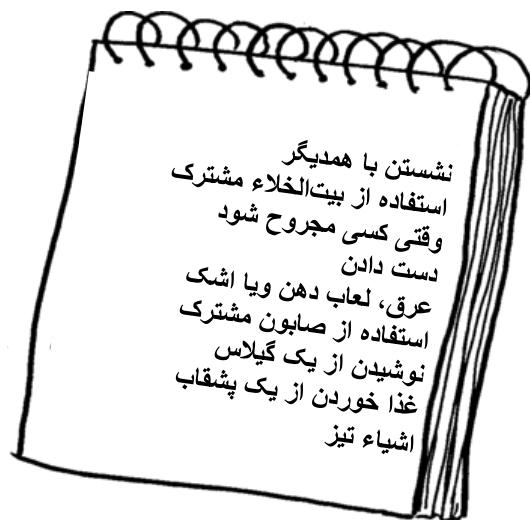 نشستن با همدیگر
استفاده از بیت‌الخلاء مشترک
وقتی کسی مجروح شود
دست دادن
عرق، لعاب دهن ویا اشک
استفاده از صابون مشترک
نوشیدن از یک گیلاس
غذا خوردن از یک پشقاب
اشیاء تیز